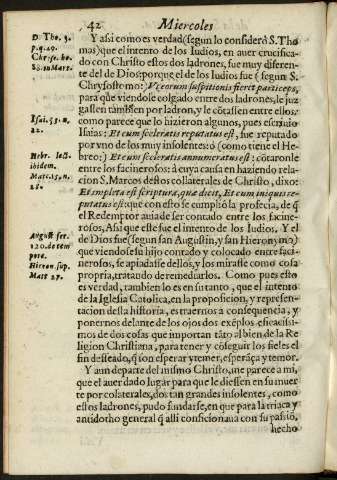 42 Miercoles
D. Tho. 3.
p. q. 49.
Chrise. ho.
88. in Matt.
Y assi como es verdad (segun lo considerò S. Tho
mas) que el intento de los Iudios, en auer crucifica-
do con Christo estos dos ladrones, fue muy diferen-
te del de Dios: porque el de los Iudios fue (segun S.
Chrysostomo: Vt eorum suspitionis fieret particeps,
para que viendole colgado entre dos ladrones, le juz
gassen tambien por ladron, y le cõtassen entre ellos:
como parece que lo hizieron algunos, pues escriuio
Isai. 53. n.
12.
Isaias: Et cum sceleratis reputatus est, fue reputado
por vno de los muy insolentes: ò (como tiene el He-
Hebr. lect.
ibidem.
Marc. 15. n.
28.
breo:) Et cum sceleratis annumeratus est: cõtaronle
entre los facinerosos: à cuya causa en haziendo rela-
cion S. Marcos destos collaterales de Christo, dixo:
Et impleta est scriptura, quæ dicit, Et cum iniquis re-
putatus est: que con esto se cumpliò la profecia, de q̃
el Redemptor auia de ser contado entre los facine-
rosos, Assi que este fue el intento de los Iudios. Y el
August. ser.
120. de tem
pore.
Hieron. sup.
Matt. 27.
de Dios fue (segun san Augustin, y san Hieronymo)
que viendo se su hijo contado y colocado entre faci-
nerosos, se apiadasse dellos, y los mirasse como cosa
propria, tratando de remediarlos. Como pues esto
es verdad, tambien lo es en su tanto, que el intento
de la Iglesia Catolica, en la proposicion, y represen-
tacion desta historia, es traernos a consequencia, y
ponernos delante de los ojos dos exẽplos eficacissi-
mos de dos cosas que importan tãto al bien de la Re
ligion Christiana, para tener y cõseguir los fieles el
fin desseado, q̃ son esperar y temer, esperãça y temor.
Y aun de parte del mismo Christo, me parece a mi,
que el auer dado lugar para que le diessen en su muer
te por colaterales, dos tan grandes insolentes, como
estos ladrones, pudo fundarse, en que para la triaca y
antidorho general q̃ alli conficionaua con su passiõ,
hecho